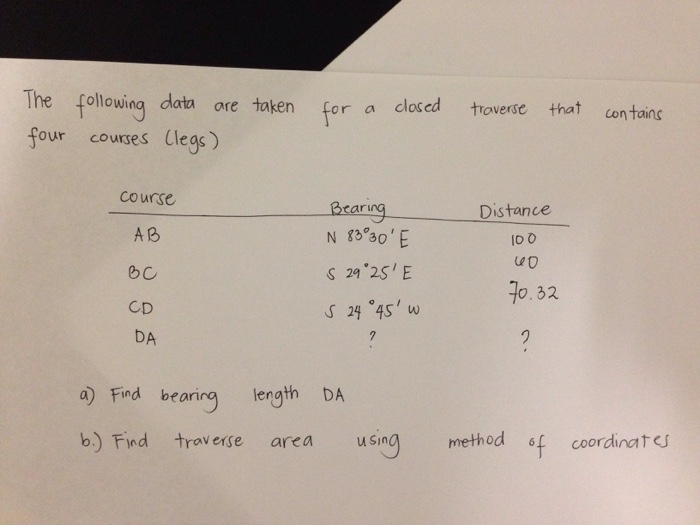 The following data are taken for a closed traverse that contains
four courses (legs)
course Bearing Distance
AB N 83°30' E 100
BC S 29°25' E 60
CD S 24°45' W 70.32
DA ? ?
a) Find bearing length DA
b.) Find traverse area using method of coordinates